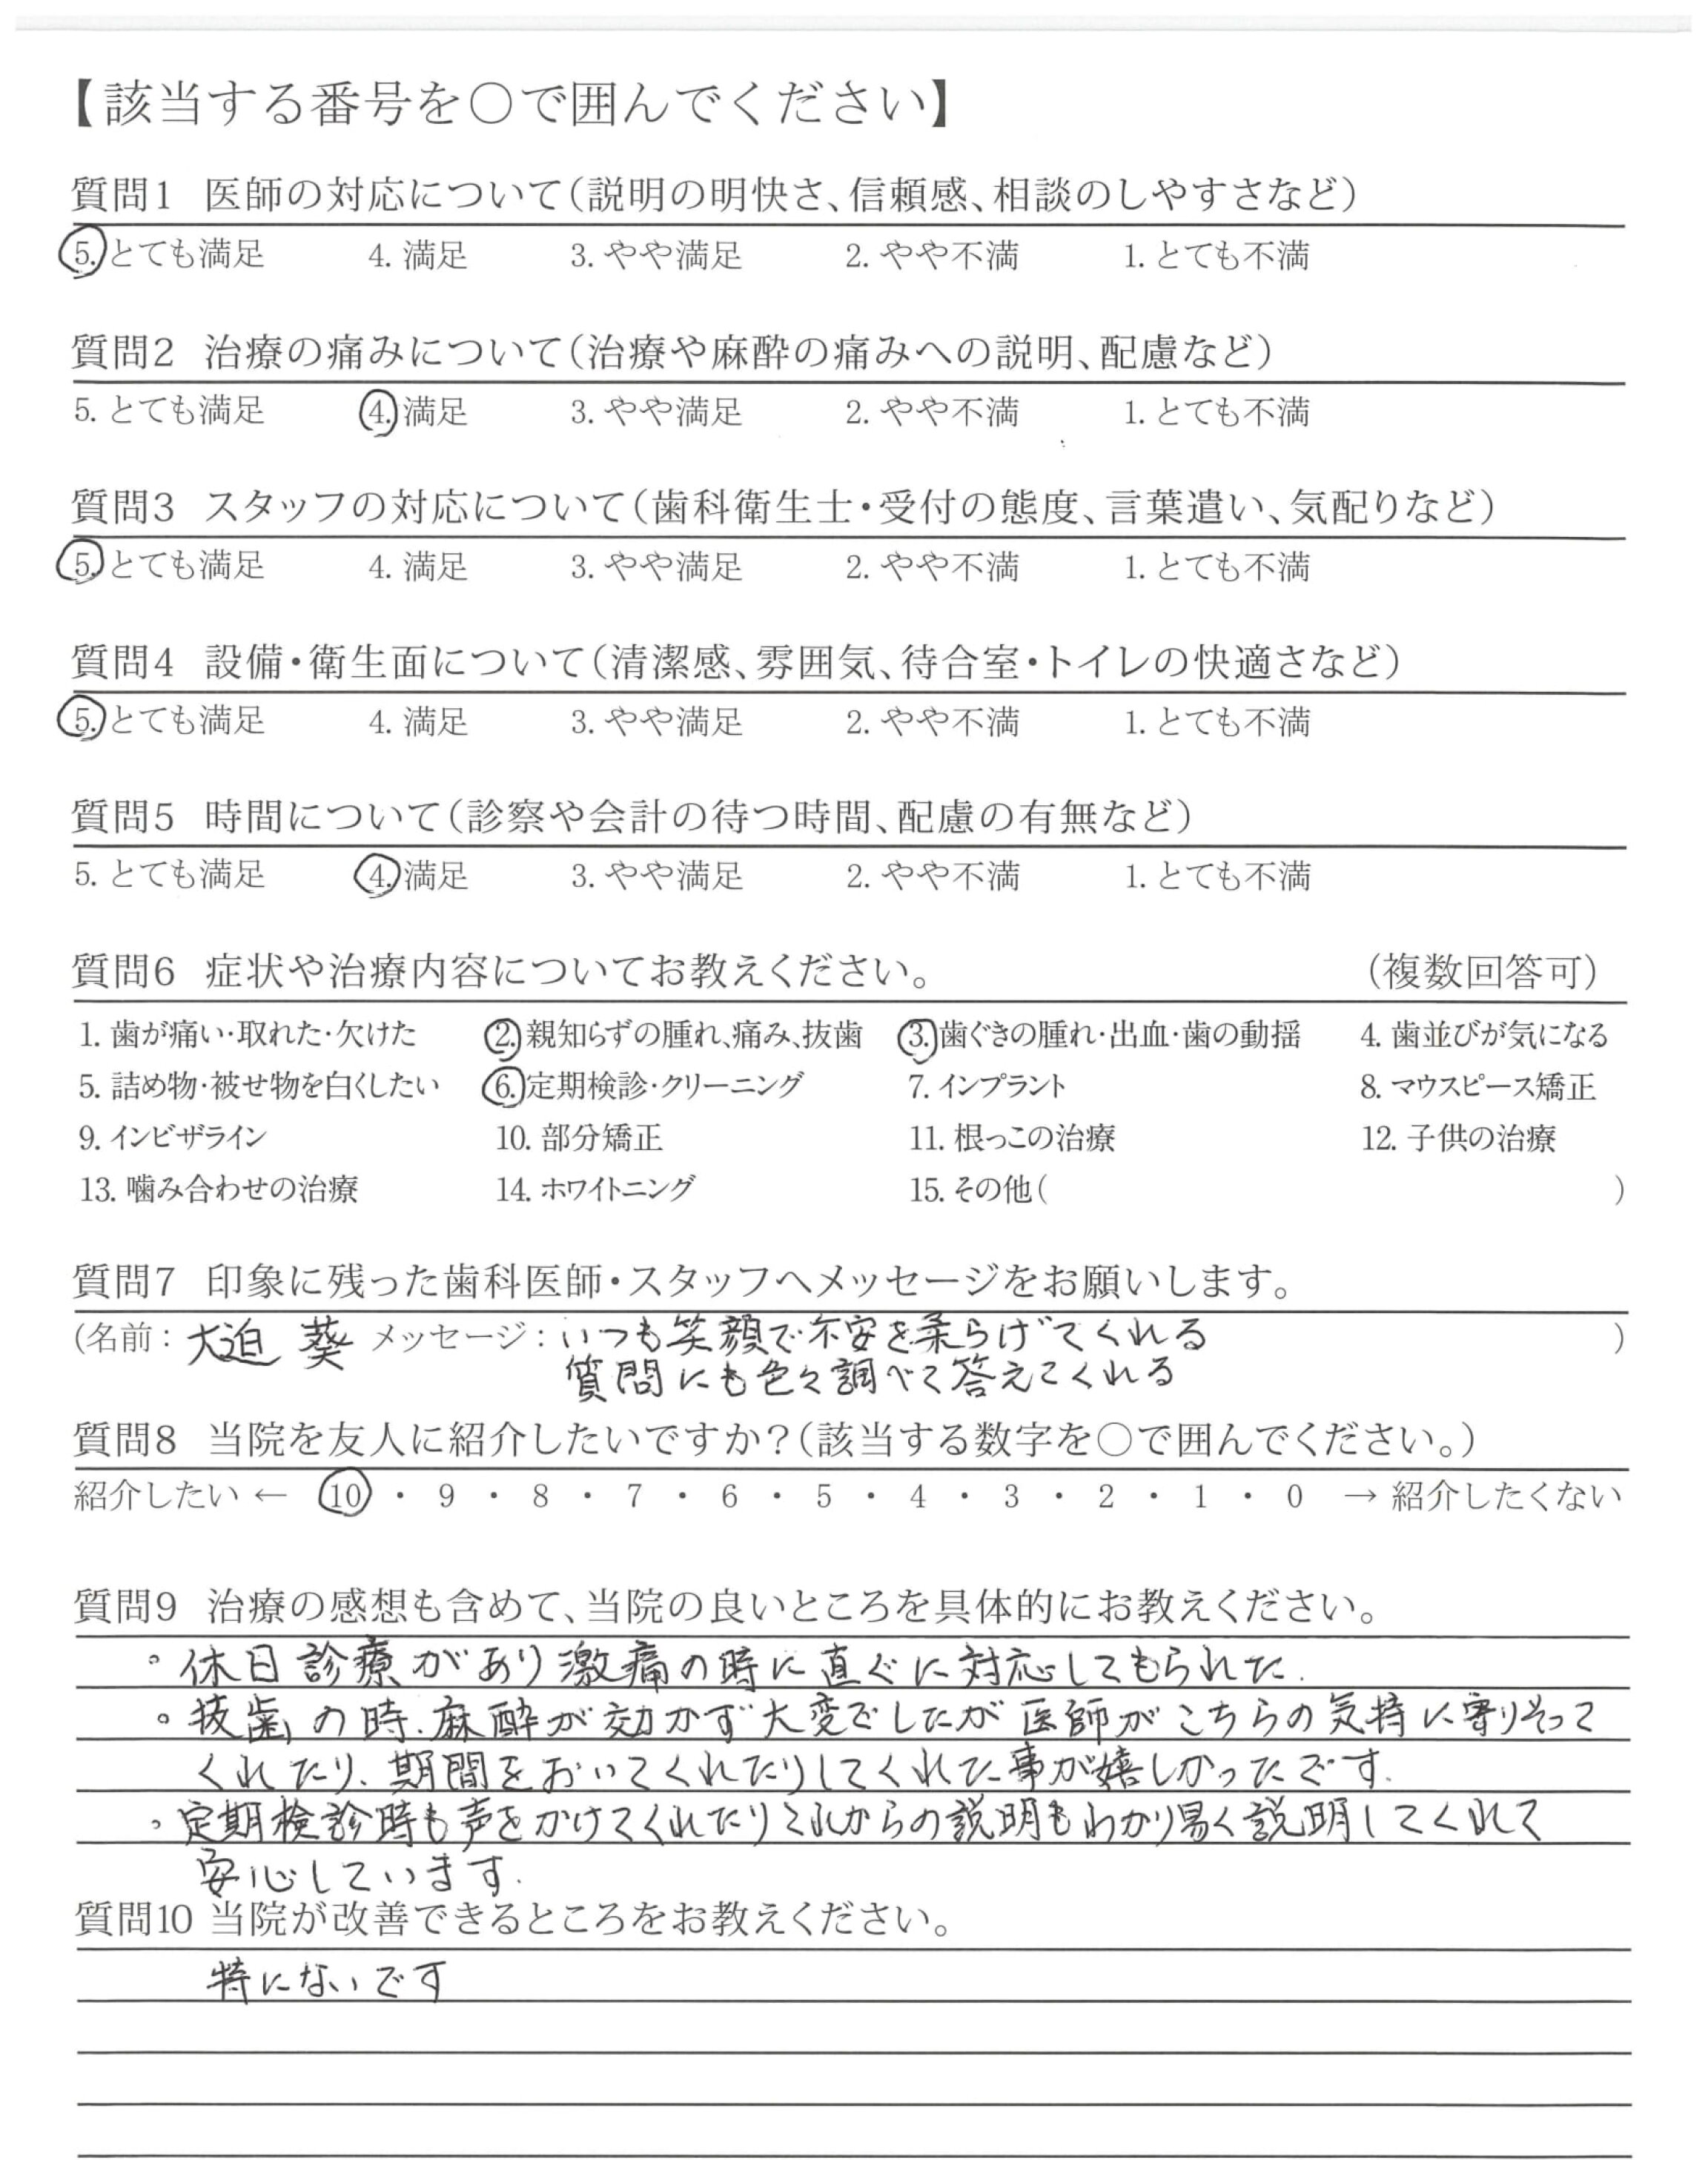 【該当する番号を○で囲んでください】
質問1 医師の対応について(説明の明快さ、信頼感、相談のしやすさなど)
5. とても満足 4. 満足 3. やや満足 2. やや不満 1. とても不満
質問2 治療の痛みについて(治療や麻酔の痛みへの説明、配慮など)
5. とても満足 4. 満足 3. やや満足 2. やや不満 1. とても不満
質問3 スタッフの対応について(歯科衛生士・受付の態度、言葉遣い、気配りなど)
5. とても満足 4. 満足 3. やや満足 2. やや不満 1. とても不満
質問4 設備・衛生面について(清潔感、雰囲気、待合室・トイレの快適さなど)
5. とても満足 4. 満足 3. やや満足 2. やや不満 1. とても不満
質問5 時間について(診察や会計の待つ時間、配慮の有無など)
5. とても満足 4. 満足 3. やや満足 2. やや不満 1. とても不満
質問6 症状や治療内容についてお教えください。 (複数回答可)
1. 歯が痛い・取れた・欠けた 2. 親知らずの腫れ、痛み、抜歯 3. 歯ぐきの腫れ・出血・歯の動揺 4. 歯並びが気になる
5. 詰め物・被せ物を白くしたい 6. 定期検診・クリーニング 7. インプラント 8. マウスピース矯正
9. インビザライン 10. 部分矯正 11. 根っこの治療 12. 子供の治療
13. 噛み合わせの治療 14. ホワイトニング 15. その他( )
質問7 印象に残った歯科医師・スタッフへメッセージをお願いします。
(名前: 大迫 葵 メッセージ: いつも笑顔で不安を柔らげてくれる )
質問にも色々調べて答えてくれる
質問8 当院を友人に紹介したいですか?(該当する数字を○で囲んでください。)
紹介したい ← 10 ・ 9 ・ 8 ・ 7 ・ 6 ・ 5 ・ 4 ・ 3 ・ 2 ・ 1 ・ 0 → 紹介したくない
質問9 治療の感想も含めて、当院の良いところを具体的にお教えください。
。休日診療があり激痛の時に直ぐに対応してもられた.
。抜歯の時、麻酔が効かず大変でしたが医師がこちらの気持に寄りそって
くれたり、期間をおいてくれたりしてくれた事が嬉しかったです.
。定期検診時も声をかけてくれたりこれからの説明もわかり易く説明してくれて
安心しています.
質問10 当院が改善できるところをお教えください。
特にないです